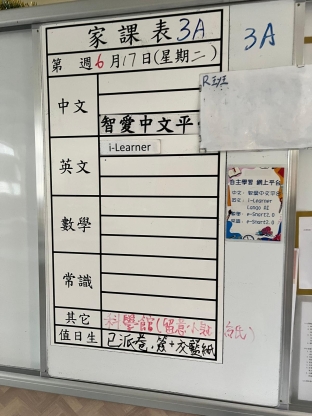 家課表 3A
3A
第 週 6 月 17 日(星期二)
R班
中文
智愛中文平
英文
i-Learner
數學
常識
其它
科學館(留意小測
值日生
已派卷,簽+交藍紙
自主學習 網上平台
中文: 智愛中文平台
英文: i-Learner
數學: e-Smart2.0
常識: e-Smart2.0